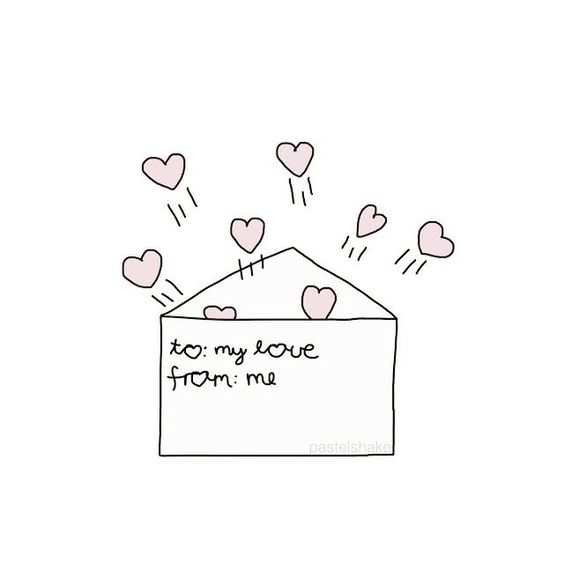 to: my love
from: me
pastelshake